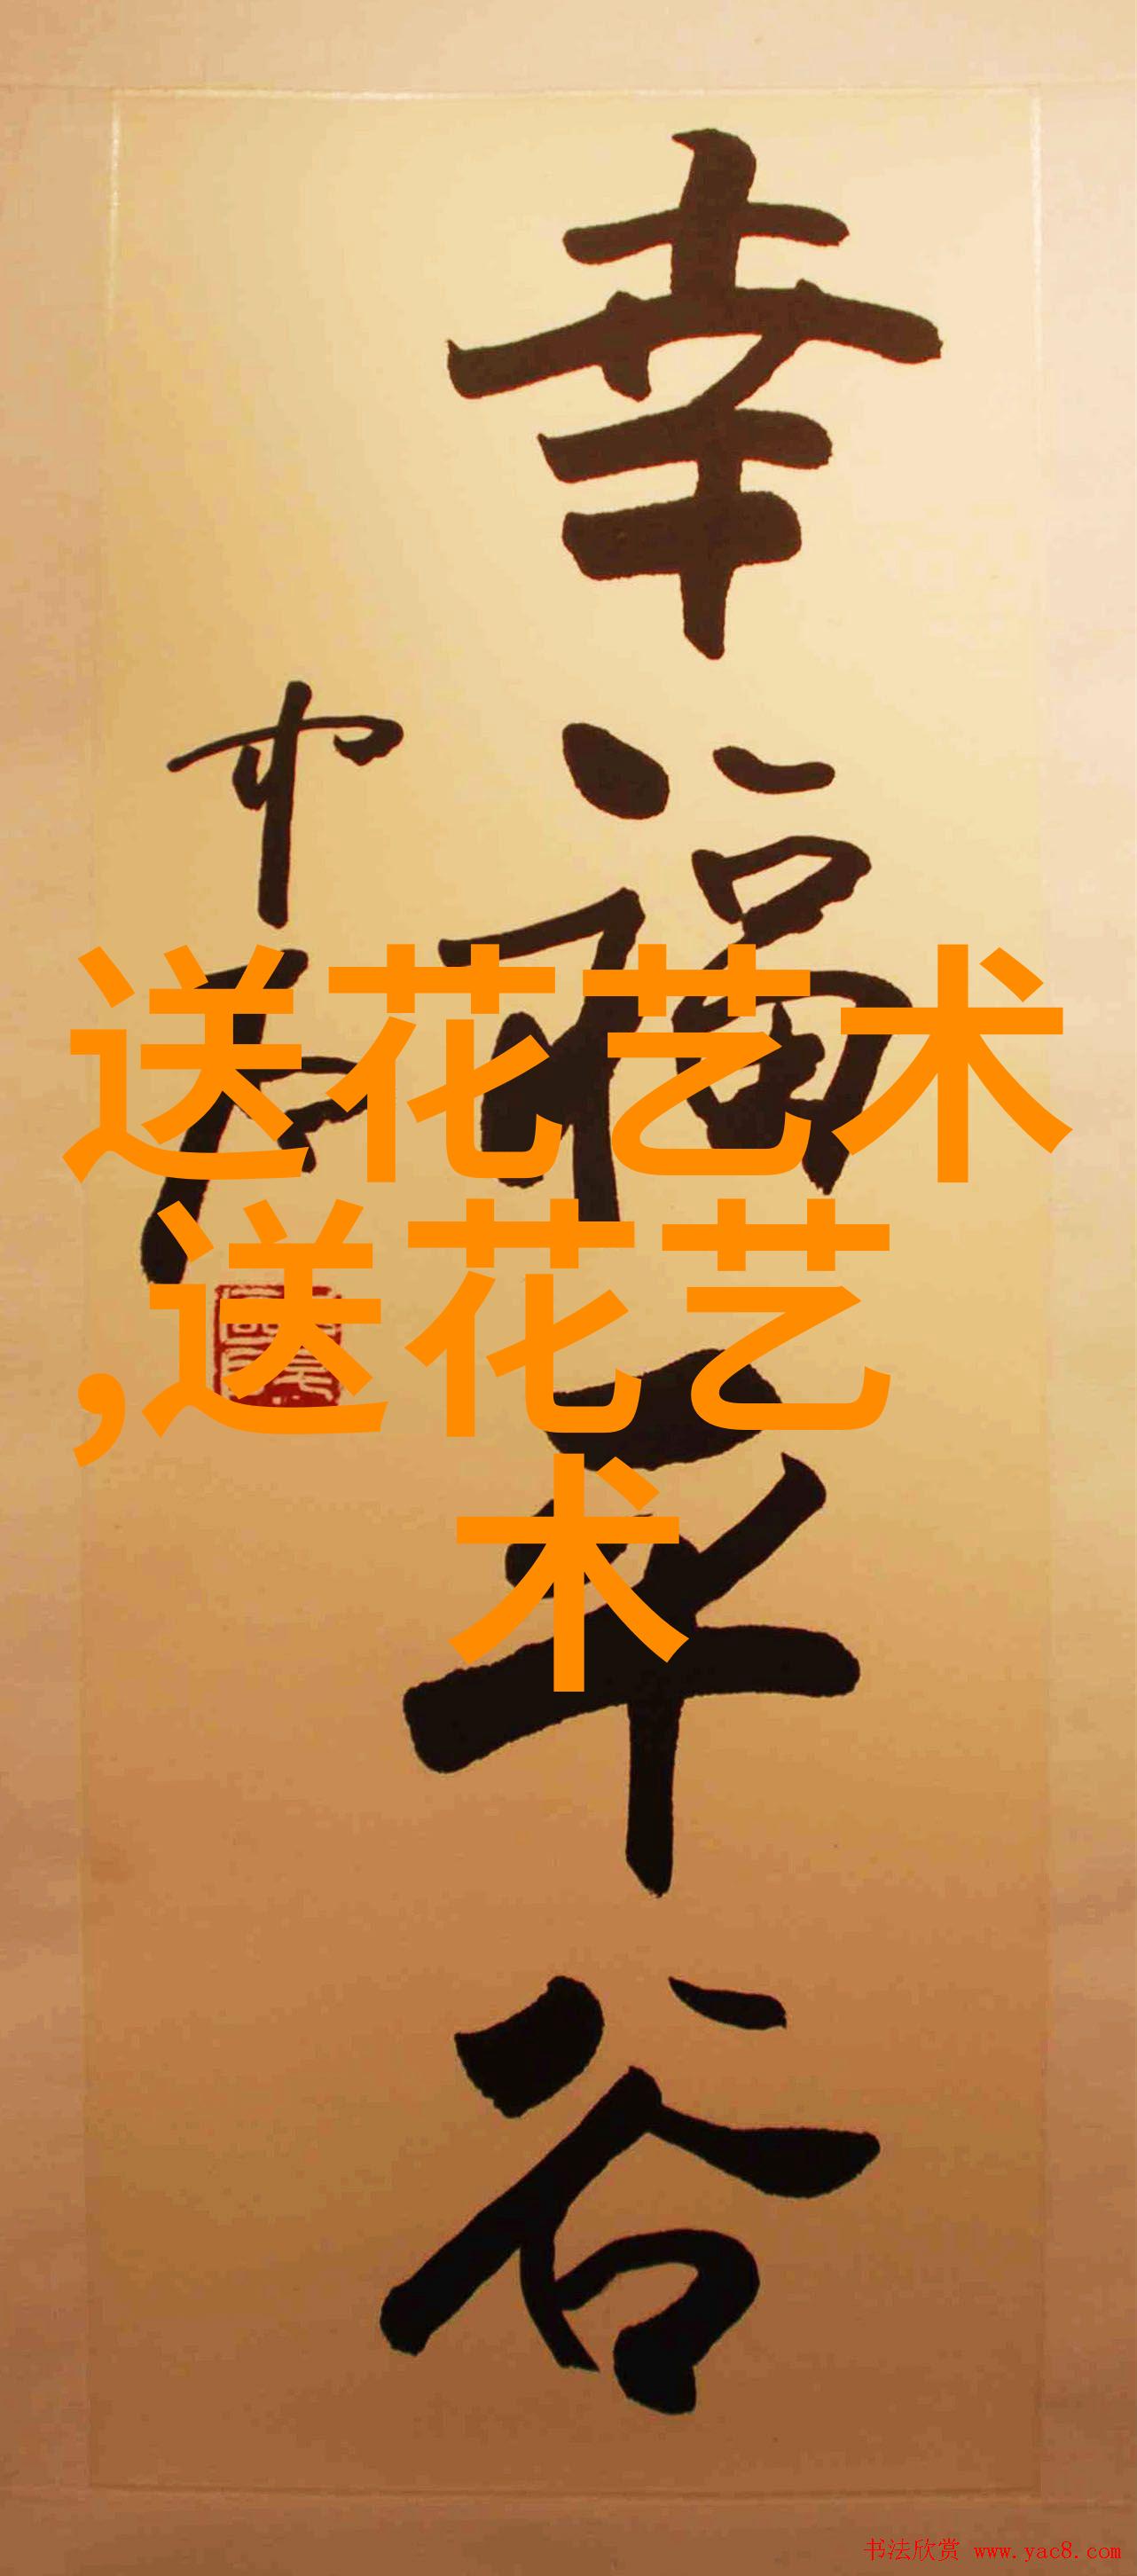 幸福平谷
送花艺术
,送花艺
术
书法欣赏 www.yac8.com